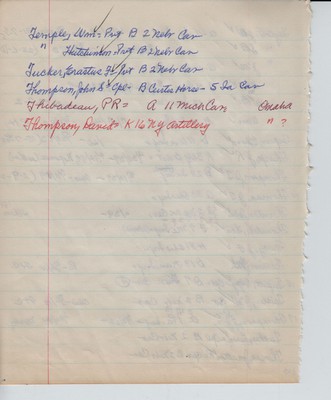 Temple, Wm = Pvt B 2 Nebr Cav
" Hutchinson = Pvt B 2 Nebr Cav
Tucker, Erastus F = Pvt B 2 Nebr Cav
Thompson, John S = Cpl - B Curtis Horse - 5 Ia Cav
Thibadeau, P R = A 11 Mich Cav Omaha
Thompson, David = K 16 Ny Artillery " ?